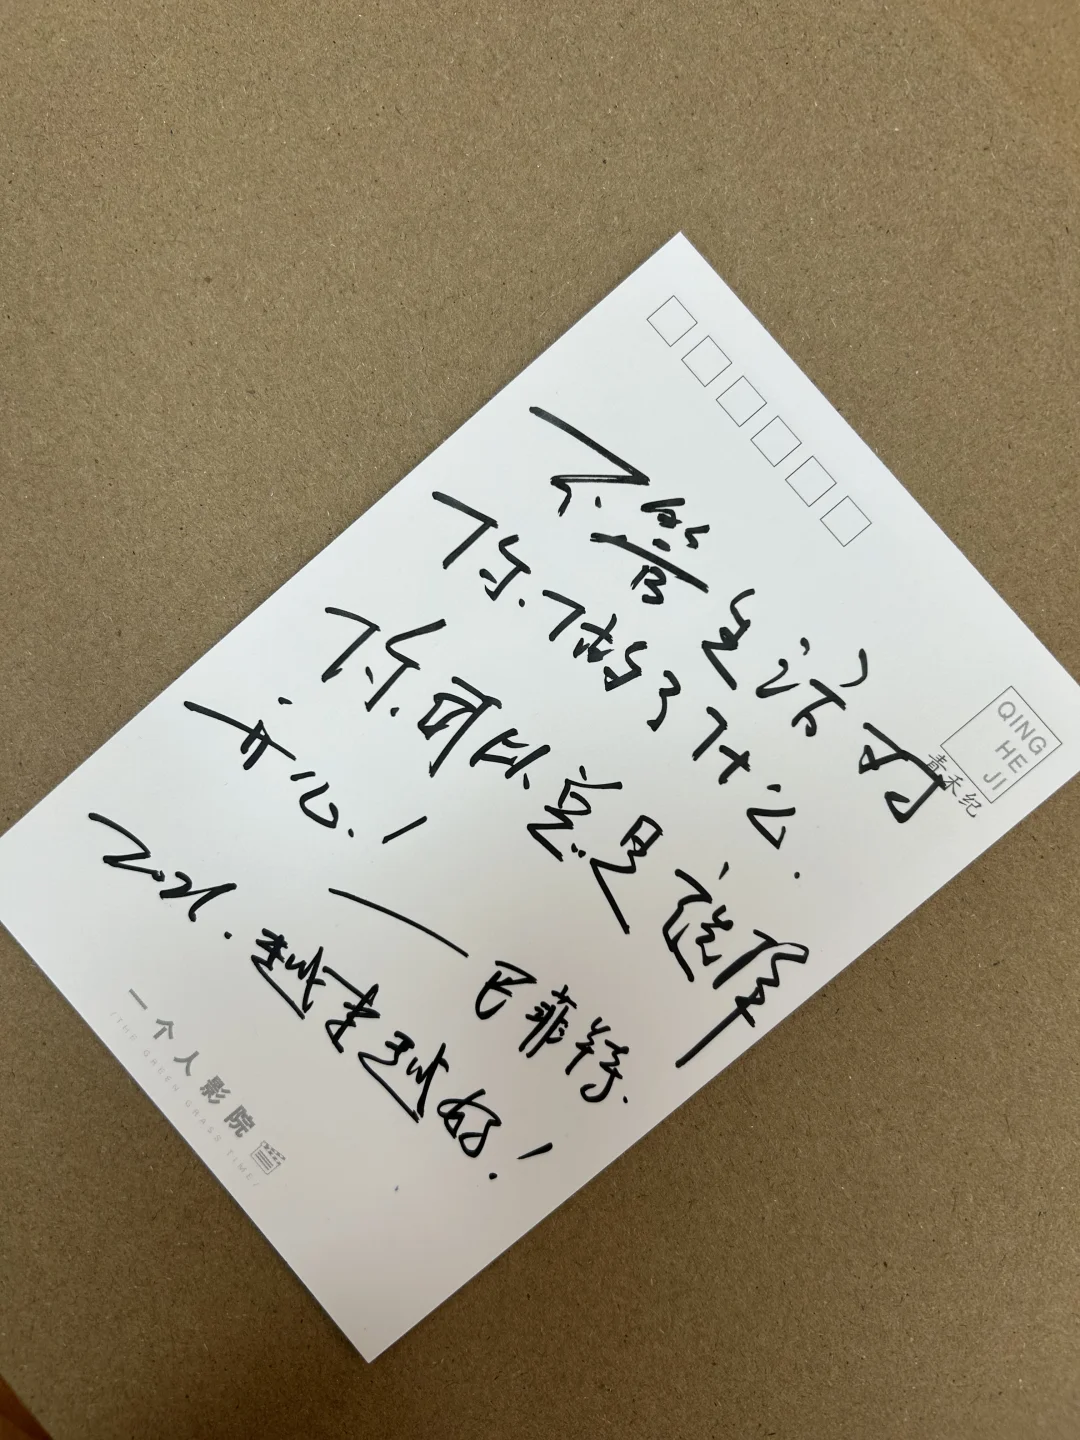 不管生活对
你.做了什么.
你.可以总是选择
开心.!
——巴菲特.
2021.越来越好!
QING
HE
JI
青禾纪
一个人影院
/THE GREEN GRASS TIME/